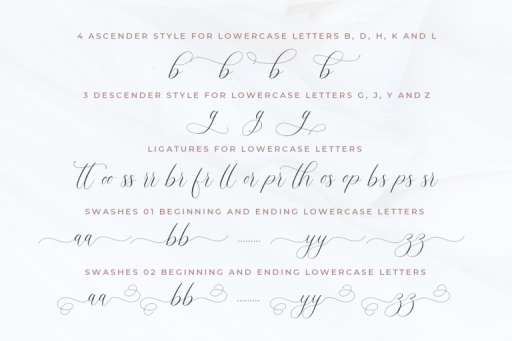 4 ASCENDER STYLE FOR LOWERCASE LETTERS B, D, H, K AND L
b b b b
3 DESCENDER STYLE FOR LOWERCASE LETTERS G, J, Y AND Z
g g g
LIGATURES FOR LOWERCASE LETTERS
tt oo ss rr br fr ll er pr th os ep bs ps sr
SWASHES 01 BEGINNING AND ENDING LOWERCASE LETTERS
aa bb .......... yy zz
SWASHES 02 BEGINNING AND ENDING LOWERCASE LETTERS
aa bb .......... yy zz